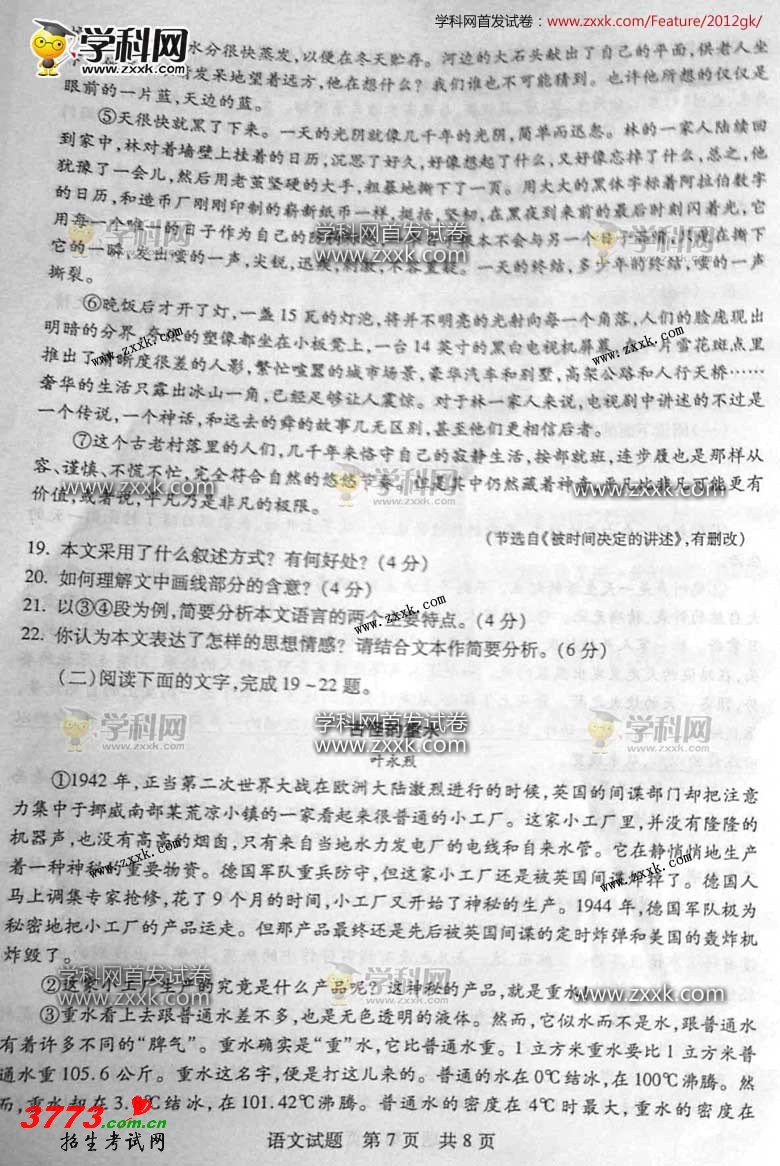 学科网首发试卷：www.zxxk.com/Feature/2012gk/
学科网
www.zxxk.com
水分很快蒸发，以便在冬天贮存。河边的大石头献出了自己的平面，供老人坐
时发呆地望着远方，他在想什么？我们谁也不可能猜到。也许他所想的仅仅是
眼前的一片蓝，天边的蓝。
⑤天很快就黑了下来。一天的光阴就像几千年的光阴，简单而迅忽。林的一家人陆续回
到家中，林对着墙壁上挂着的日历，沉思了好久，好像想起了什么，又好像忘掉了什么，总之，他
犹豫了一会儿，然后用老茧坚硬的大手，粗暴地撕下了一页。用大大的黑体字标着阿拉伯数字
的日历，和造币厂刚刚印制的崭新纸币一样，挺括，坚韧，在黑夜到来前的最后时刻闪着光，它
用每一个唯一的日子作为自己的 根本不会与另一个日子 是在撕下
它的一瞬，发出噬的一声，尖锐，迅疾，刺激，不容重视。一天的终结，多少年的终结，噬的一声
撕裂。
⑥晚饭后才开了灯，一盏 15 瓦的灯泡，将并不明亮的光射向每一个角落，人们的脸庞现出
明暗的分界 的塑像都坐在小板凳上，一台 14 英寸的黑白电视机屏幕，在一片雪花斑点里
推出了清晰度很差的人影，繁忙喧嚣的城市场景，豪华汽车和别墅，高架公路和人行天桥……
奢华的生活只露出冰山一角，已经足够让人震惊。对于林一家人来说，电视剧中讲述的不过是
一个传说，一个神话，和远去的舜的故事几无区别，甚至他们更相信后者。
⑦这个古老村落里的人们，几千年来恪守自己的寂静生活，按部就班，连步履也是那样从
容、谨慎、不慌不忙，完全符合自然的悠悠节奏。但是其中仍然藏着神奇，平凡比非凡可能更有
价值，或者说，平凡乃是非凡的极限。
（节选自《被时间决定的讲述》，有删改）
19. 本文采用了什么叙述方式？有何好处？（4 分）
20. 如何理解文中画线部分的含意？（4 分）
21. 以③④段为例，简要分析本文语言的两个主要特点。（4 分）
22. 你认为本文表达了怎样的思想情感？请结合文本作简要分析。（6 分）
（二）阅读下面的文字，完成 19～22 题。
古怪的重水
叶永烈
①1942 年，正当第二次世界大战在欧洲大陆激烈进行的时候，英国的间谍部门却把注意
力集中于挪威南部某荒凉小镇的一家看起来很普通的小工厂。这家小工厂里，并没有隆隆的
机器声，也没有高高的烟囱，只有来自当地水力发电厂的电线和自来水管。它在静悄悄地生产
着一种神秘的重要物资。德国军队重兵防守，但这家小工厂还是被英国间谍炸掉了。德国人
马上调集专家抢修，花了 9 个月的时间，小工厂又开始了神秘的生产。1944 年，德国军队极为
秘密地把小工厂的产品运走。但那产品最终还是先后被英国间谍的定时炸弹和美国的轰炸机
炸毁了。
②这家小工厂生产的究竟是什么产品呢？这神秘的产品，就是重水！
③重水看上去跟普通水差不多，也是无色透明的液体。然而，它似水而不是水，跟普通水
有着许多不同的“脾气”。重水确实是“重”水，它比普通水重。1 立方米重水要比 1 立方米普
通水重 105.6 公斤。重水这名字，便是打这儿来的。普通的水在 0℃结冰，在 100℃沸腾。然
而，重水却在 3. ℃结冰，在 101.42℃沸腾。普通水的密度在 4℃时最大，重水的密度在
3773.com.cn
招生考试网
语文试题 第 7 页 共 8 页